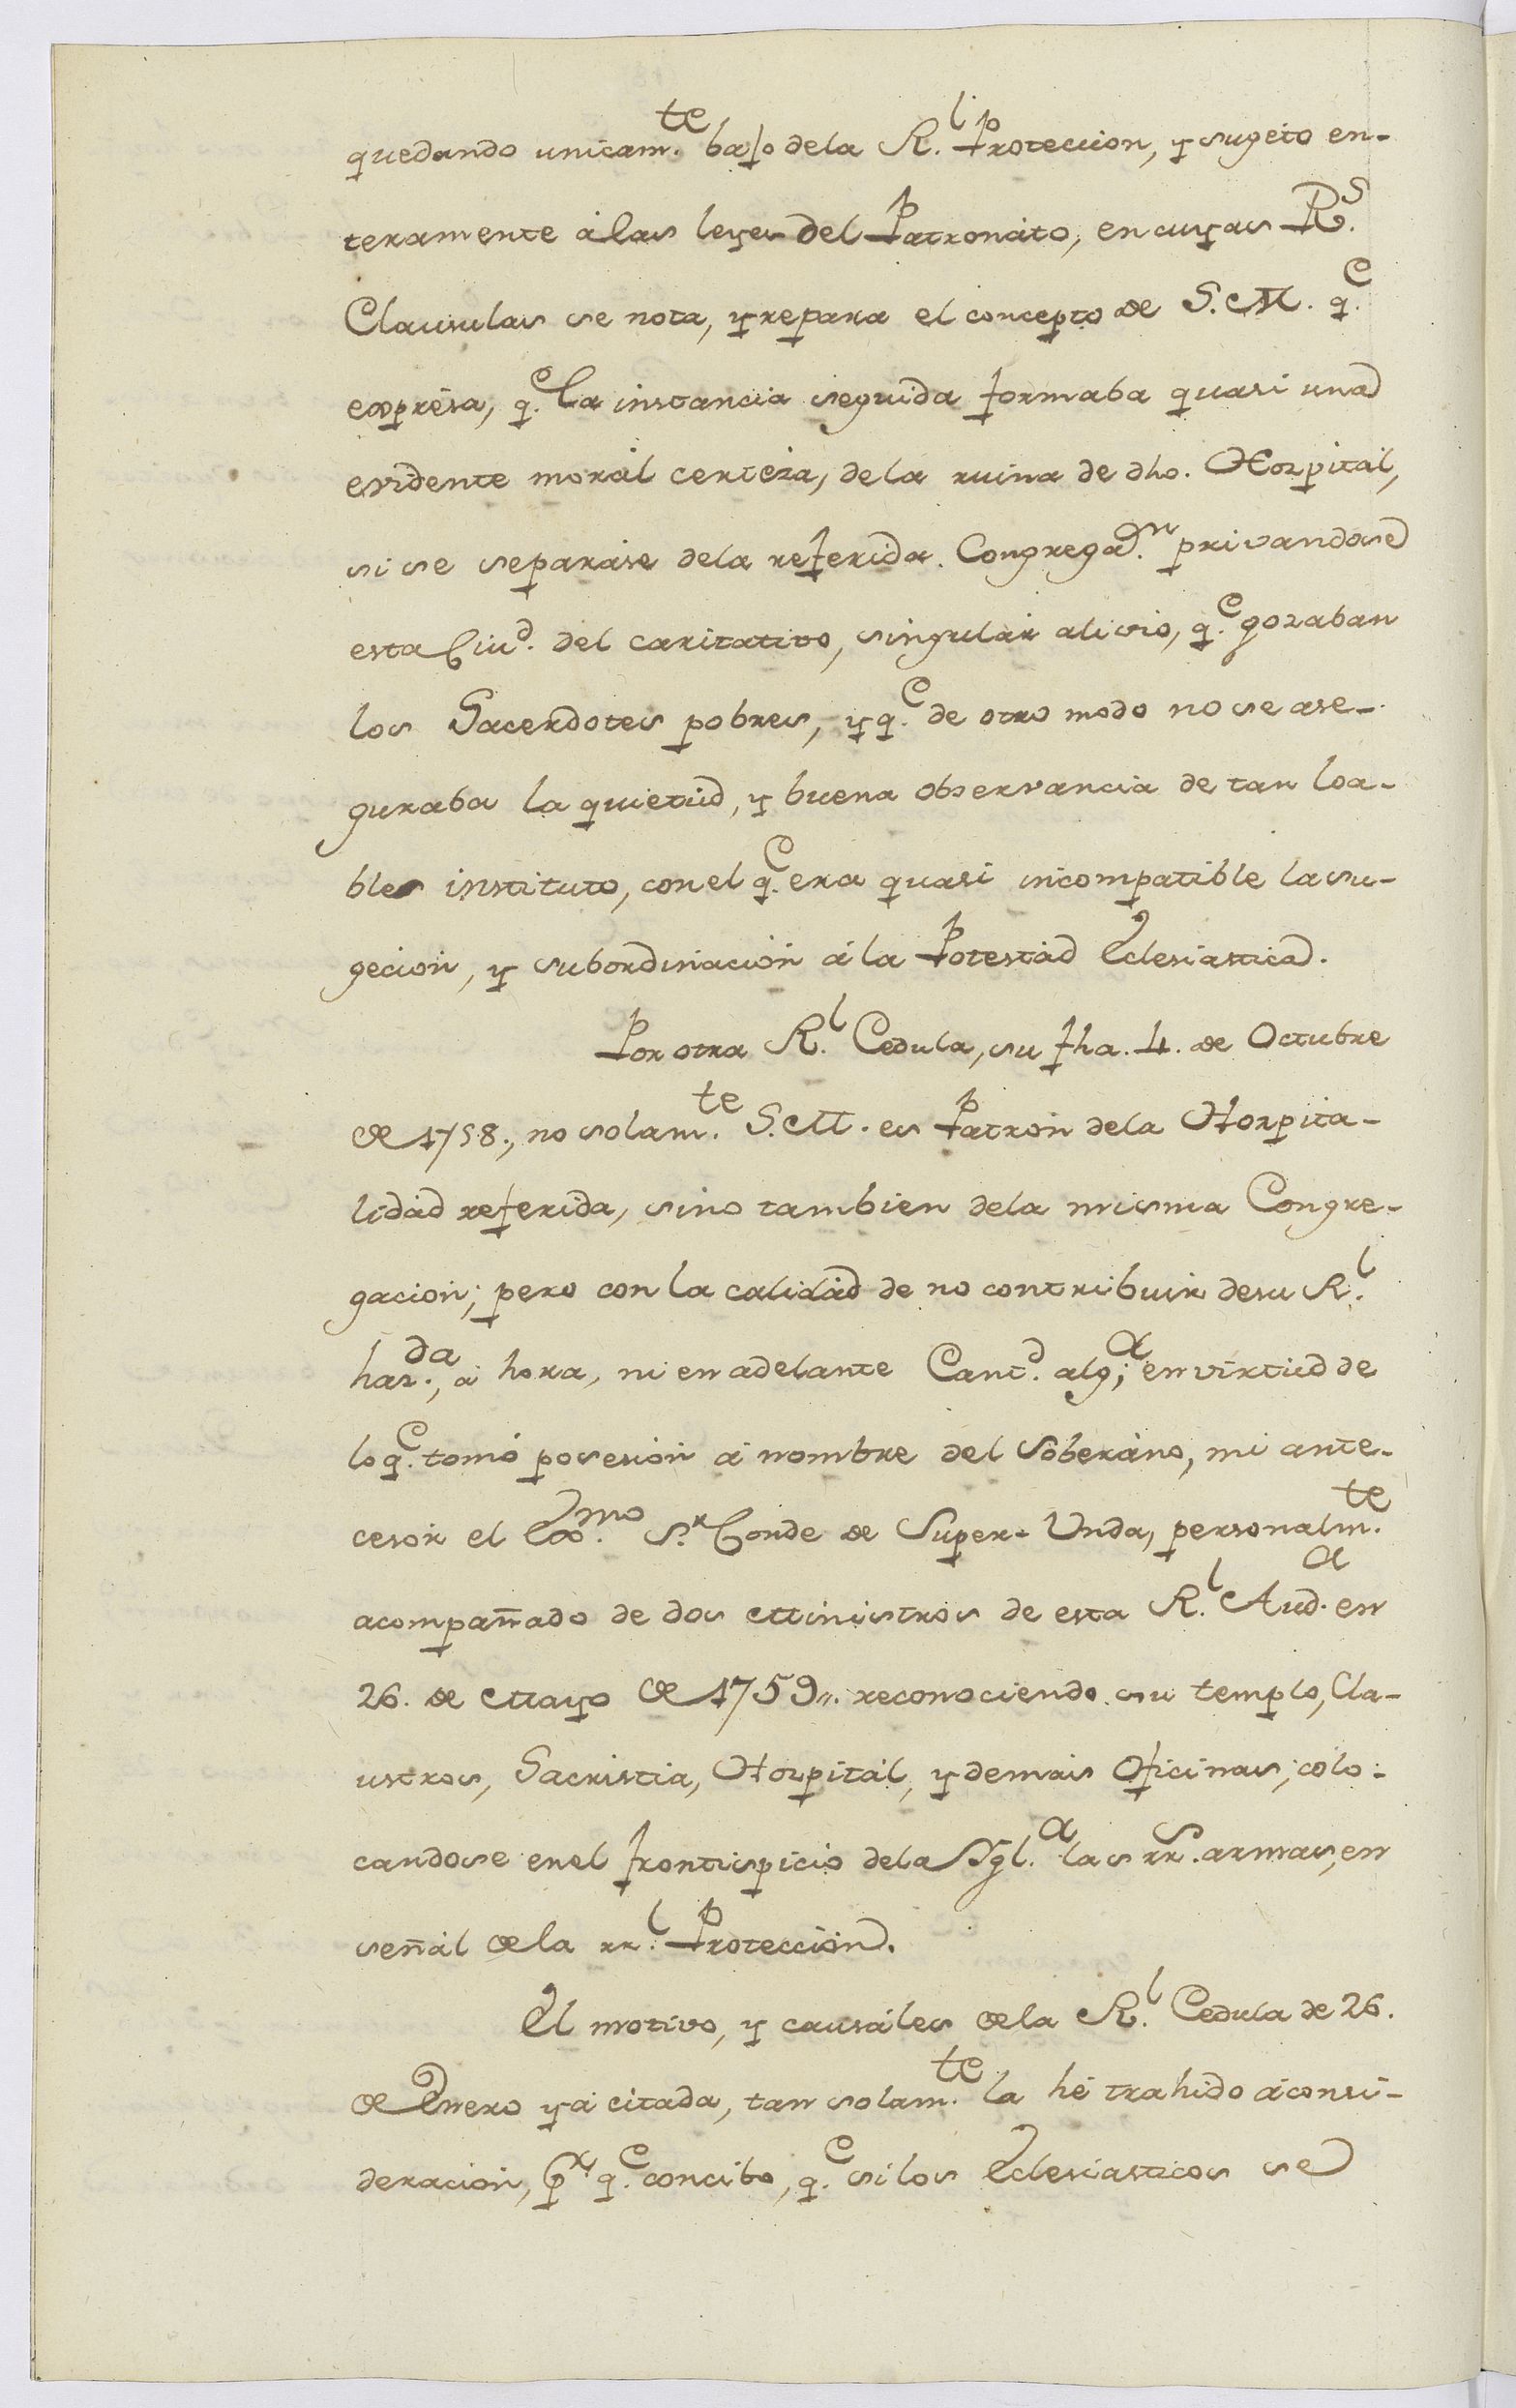 quedando unicam.te bajo dela R.l Proteccion, y sugeto en-
teramente á las leyes del Patronáto, en cuyas R.s
Clausulas se nota, y repara el concepto de S. M. q.e
exprésa, q.e la instancia seguida formaba quasi una
evidente morál certeza, dela ruina de dho. Hospitál,
si se separáse dela referida Congregaᵒn. privandose
esta Ciud. del caritativo, singulár alivio, q.e gozaban
los Sacerdotes pobres, y q.e de otro modo no se ase-
guraba la quietúd, y buena observancia de tan loa-
bles instituto, con el q.e era quasi incompatible la su-
gecion, y subordinación á la Potestád Eclesiastica.
Por otra R.l Cedula, su fha. 4. de Octubre
de 1758., no solam.te S. M. es Patrón dela Hospita-
lidád referida, sino tambien dela misma Congre-
gacion; pero con la calidád de no contribuir desu R.l
haz.da, á hora, ni en adelante Cant.d alg.a; en virtúd de
lo q.e tomó posesión á nombre del Soberáno, mi ante-
cesór el Exmo. S.r Conde de Super-Unda, personalm.te
acompañado de dos Ministros de esta R.l Aud.a en
26. de Mayo de 1759,,. reconociendo su templo, Cla-
ustros, Sacristia, Hospitál, y demás Oficinas; colo-
candose en el frontispicio dela Ygl.a las rr.s armas, en
señál de la rr.l Protección.
El motivo, y causáles de la R.l Cedula de 26.
de Enero yá citada, tan solam.te la hé trahido á consi-
deracion, p.r q.e concibo, q.e si los Eclesiasticos se